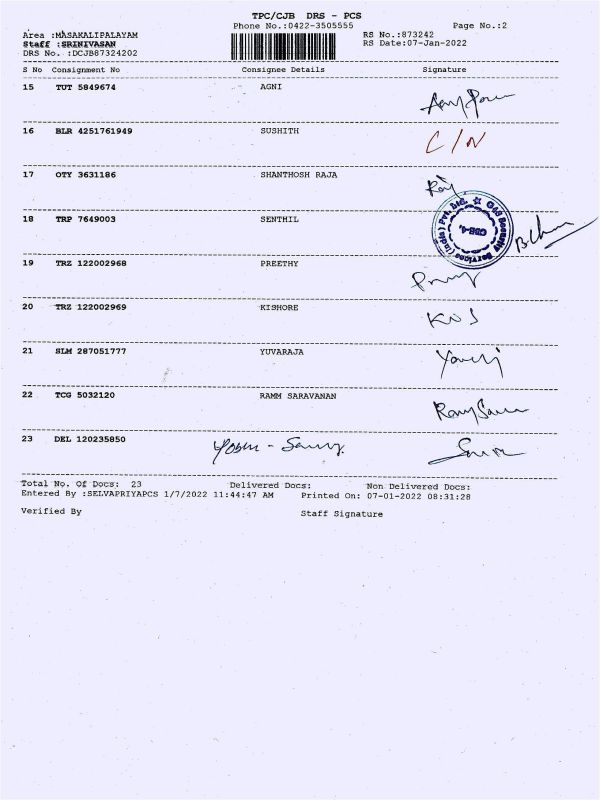 TPC/CJB DRS - PCS
Phone No.:0422-3505555 Page No.:2
Area :MASAKALIPALAYAM RS No.:873242
Staff :SRINIVASAN RS Date:07-Jan-2022
DRS No. :DCJB87324202
S No Consignment No Consignee Details Signature
15 TUT 5849674 AGNI
16 BLR 4251761949 SUSHITH C/N
17 OTY 3631186 SHANTHOSH RAJA Raj
G4S Security Services (India) Pvt. Ltd. ☆
CBE-4.
18 TRP 7649003 SENTHIL
19 TRZ 122002968 PREETHY
20 TRZ 122002969 KISHORE
21 SLM 287051777 YUVARAJA
22 TCG 5032120 RAMM SARAVANAN
23 DEL 120235850
Total No. Of Docs: 23 Delivered Docs: Non Delivered Docs:
Entered By :SELVAPRIYAPCS 1/7/2022 11:44:47 AM Printed On: 07-01-2022 08:31:28
Verified By Staff Signature